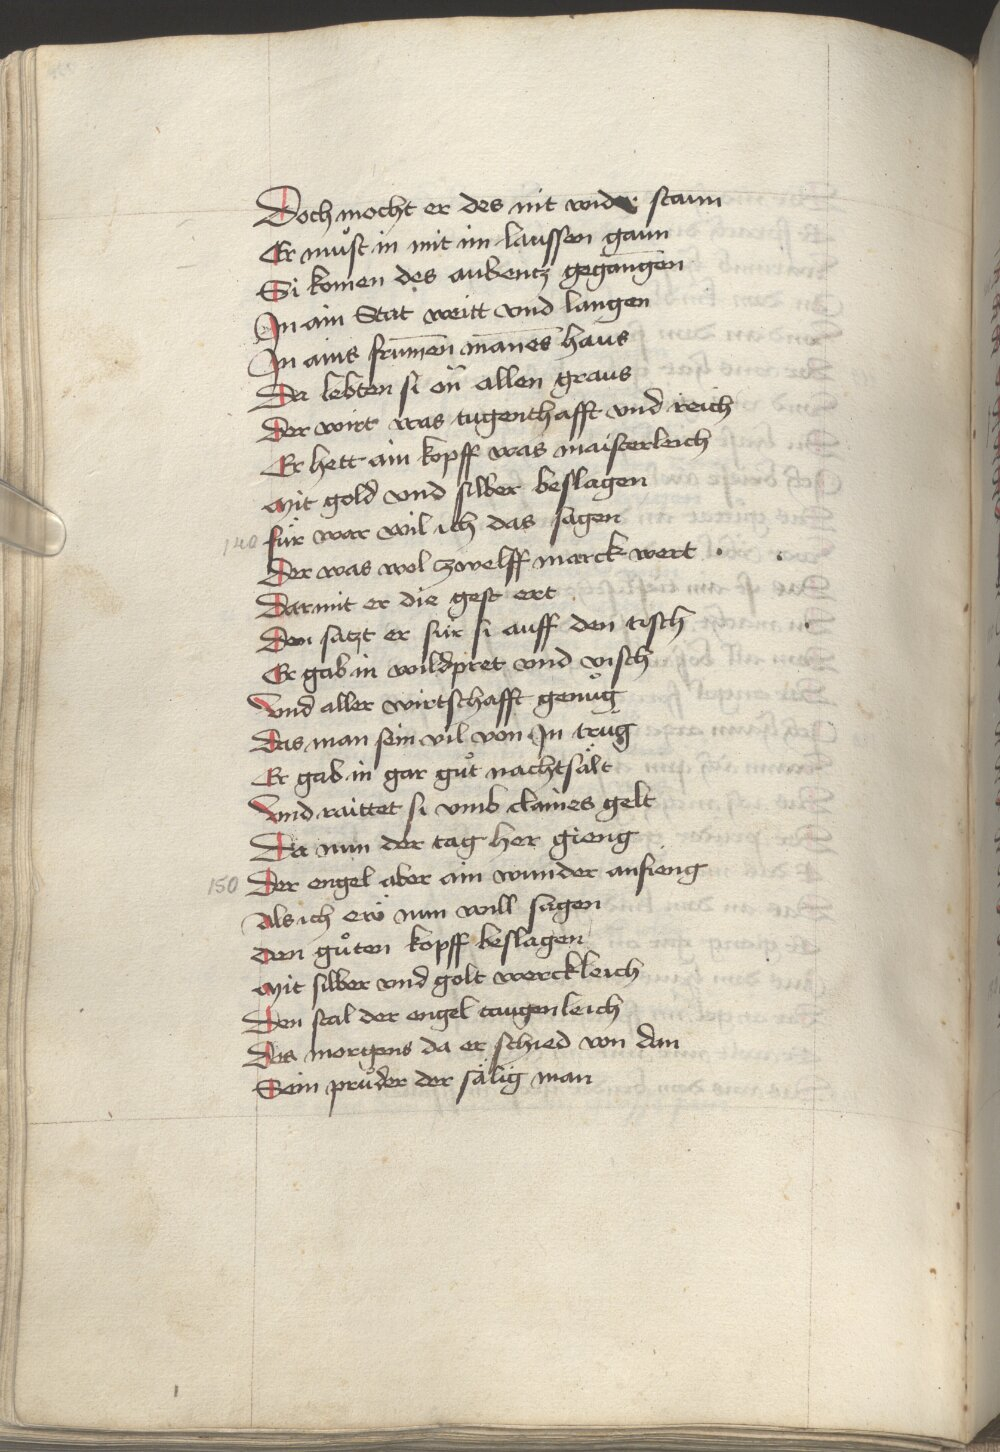 Doch mocht er des nit wider staun
Er muͦst in mit im laussen gaun
Si komen des aubentz gegangen̄
In ain Stat weitt vnd langen
In ains frum̄en man̄es haus
Da lebten si on̄ allen graus
Der wirt was tugenthafft vnd reich
Er hett ain kopff was maisterleich
Mit gold vnd silber beslagen
für war wil ich das sagen
140
Der was wol zwelff marck wert
Darmit er die gest ert
Den satzt er für si auff den tisch
Er gab in wildpret vnd visch
Vnd aller wirtschafft genuͦg
Das man sein vil von In truͦg
Er gab in gar guͦt nachtsält
Vnd raittet si vmb claines gelt
Da nun der tag her gieng
150 Der engel aber ain wunder anfieng
Als ich ew nun will sagen
Den guͦten kopff beslagen
Mit silber vnd golt werckleich
Den stal der engel taugenleich
Des morgens da er schied von dan
Sein pruͦder der sälig man